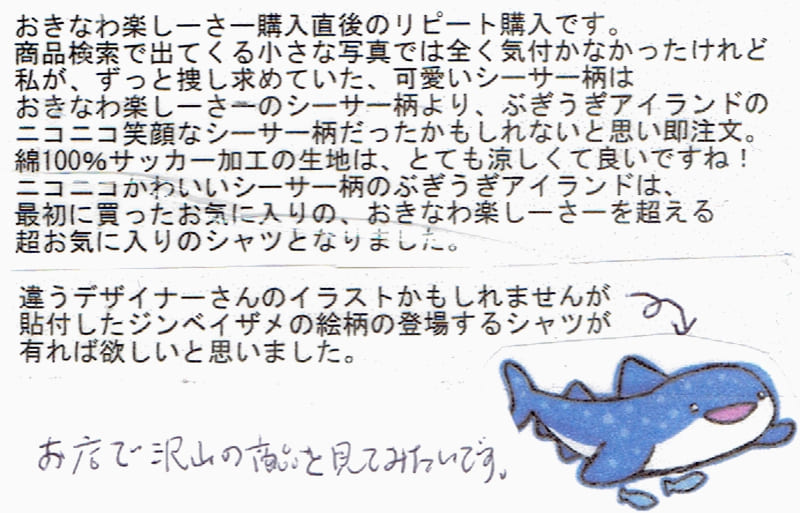 おきなわ楽しーさー購入直後のリピート購入です。
商品検索で出てくる小さな写真では全く気付かなかったけれど
私が、ずっと捜し求めていた、可愛いシーサー柄は
おきなわ楽しーさーのシーサー柄より、ぶぎうぎアイランドの
ニコニコ笑顔なシーサー柄だったかもしれないと思い即注文。
綿100%サッカー加工の生地は、とても涼しくて良いですね！
ニコニコかわいいシーサー柄のぶぎうぎアイランドは、
最初に買ったお気に入りの、おきなわ楽しーさーを超える
超お気に入りのシャツとなりました。
違うデザイナーさんのイラストかもしれませんが
貼付したジンベイザメの絵柄の登場するシャツが
有れば欲しいと思いました。
お店で沢山の商品を見てみたいです。